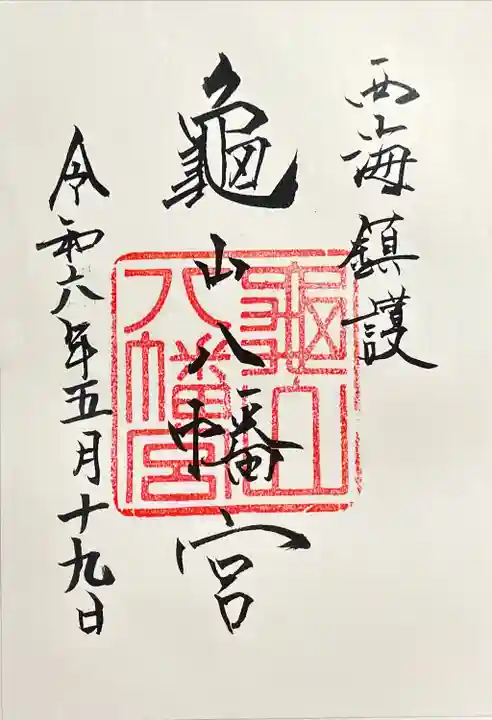 西海鎮護
龜山八幡宮
龜山八幡宮
令和六年五月十九日